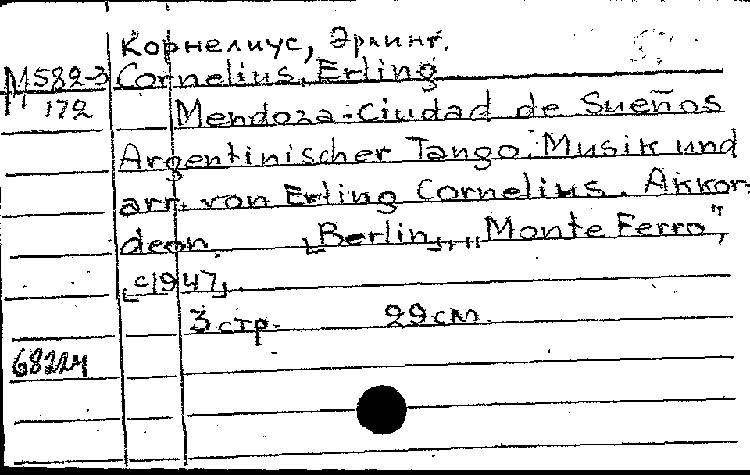 Корнелиус, Эрлинг.
М582-3 Cornelius, Erling
172 Mendoza-Ciudad de Sueños
Argentinischer Tango. Musik und
arr. von Erling Cornelius. Akkor-
deon. [Berlin], „Monte Ferro”,
[c1947].
3 стр. 29 см.